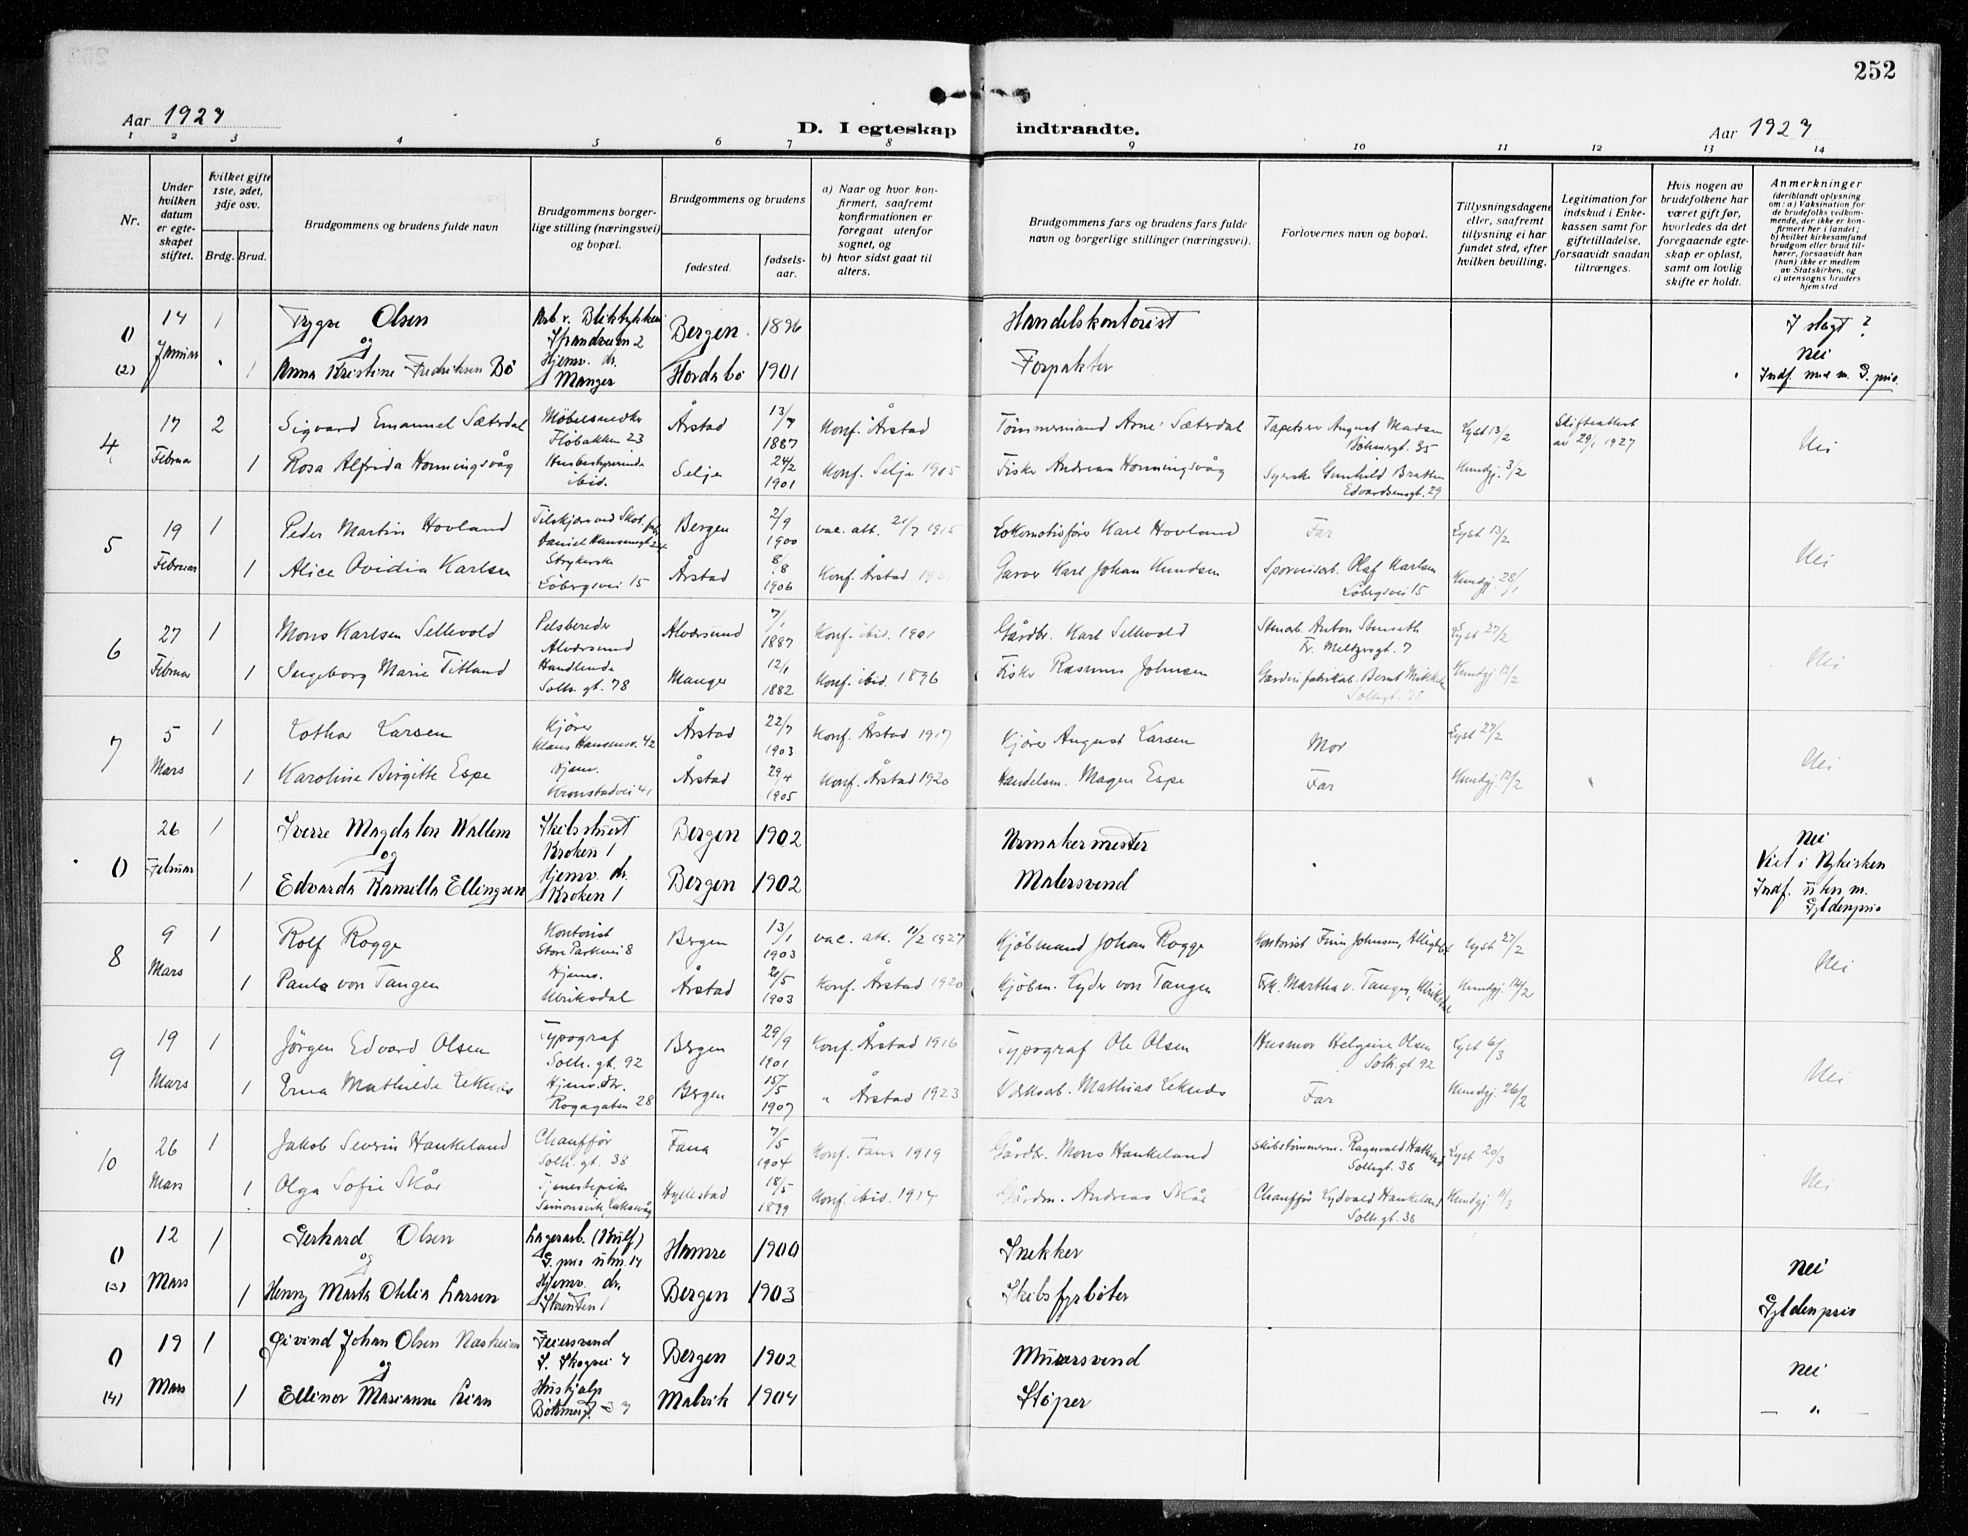 252
Aar 1927
D. I egteskap indtraadte.
Aar 1927
1 2 3 4 5 6 7 8 9 10 11 12 13 14
Nr.
Under hvilken datum er egteskapet stiftet.
hvilket gifte 1ste, 2det, 3dje osv.
Brdg. Brud.
Brudgommens og brudens fulde navn
Brudgommens borgerlige stilling (næringsvei) og bopæl.
Brudgommens og brudens
fødested.
fødselsaar.
a) Naar og hvor konfirmert, saafremt konfirmationen er foregaat utenfor sognet, og
b) hvor sidst gaat til alters.
Brudgommens fars og brudens fars fulde navn og borgerlige stillinger (næringsvei).
Forlovernes navn og bopæl.
Tillysningsdagene eller, saafremt tillysning ei har fundet sted, efter hvilken bevilling.
Legitimation for indskud i Enkekassen samt for giftetilladelse, forsaavidt saadan tiltrænges.
Hvis nogen av brudefolkene har været gift før, hvorledes da det foregaaende egteskap er opløst, samt om lovlig skifte er holdt.
Anmerkninger
(deriblandt oplysning om: a) Vaksination for de brudefolks vedkommende, der ikke er konfirmert her i landet; b) hvilket kirkesamfund brudgom eller brud tilhører, forsaavidt han (hun) ikke er medlem av Statskirken, og c) utensogns bruders hjemsted
0 14 1 Trygve Olsen Arb. v. Bergen 1896 Handelskontorist I slegt?
og Strandveien 2 nei
(2) Januar " 1 Anna Kristine Fredriksen Bö Hjemv. dr. Manger Hordabö 1901 Forpakter Indf. med m. G. pris
4 17 2 Sigvard Emanuel Sæterdal Möbelsnedker Flöbakken 23 Årstad 13/7 1887 Konf. Årstad Tömmermand Arne Sæterdal Tapetserer August Madsen Böhmergt. 35 Lyst 13/2 Skifteattest av 29/1 1927 Nei
Februar 1 Rosa Alfrida Honningsvåg Husbestyrerinde ibid. Selje 24/2 1901 Konf. Selje 1915 Fisker Andreas Honningsvåg Syerske Gunhild Bratten Edvardsensgt. 29 Kundgj. 3/2
5 19 1 Peder Martin Hovland Tilskjærer ved Skof. Daniel Hansensgt 24 Bergen 2/9 1900 vac. att. 21/7 1915 Lokomotivförer Karl Hovland Far Lyst 13/2 Nei
Februar 1 Alice Ovidia Karlsen Strykerske Löbergsvei 15 Årstad 8/8 1906 Konf. Årstad 1921 Garver Karl Johan Knudsen Sporveisarb. Olaf Karlsen Löbergsvei 15 Kundgj 28/1
6 27 1 Mons Karlsen Sellevold Pelsbereder Alversund Alversund 7/1 1887 Konf. ibid. 1901 Gårdbr. Karl Sellevold Stenarb. Anton Stenseth Fr. Meltzersgt. 7 Lyst 27/2 Nei
Februar 1 Ingeborg Marie Titland Handlende Solh. gt. 78 Manger 12/1 1882 Konf. ibid. 1896 Fisker Rasmus Johnsen Bernt Solhgt. 78 Kundgj 12/2
7 5 1 Lothar Larsen Kjörer Klaus Hansensv. 42 Årstad 22/7 1903 Konf. Årstad 1917 Kjörer August Larsen Mor Lyst 27/2 Nei
Mars 1 Karoline Birgitte Espe Hjemv. Kronstadvei 41 Årstad 29/4 1905 Konf. Årstad 1920 Handelsm. Magen Espe Far Kundgj 12/2
26 1 Sverre Magdalon Wallem Skibsstuert Kroken 1 Bergen 1902 Urmakermester nei
0 Februar og Viet i Nykirken
1 Edvarda Kamilla Ellingsen Hjemv. dr. Kroken 1 Bergen 1902 Malersvend Indf. uten m. Gyldenpris
8 9 1 Rolf Rogge Kontorist Store Parkvei 8 Bergen 13/1 1903 vac. att. 11/2 1927 Kjöbmand Johan Rogge Kontorist Finn Johnsen, Lyst 27/2 Nei
Mars 1 Paula von Tangen Hjemv. Ulriksdal Årstad 21/5 1903 Konf. Årstad 1920 Kjöbm. Lyder von Tangen Frk. Martha v. Tangen, Ulriksdal Kundgj. 14/2
9 19 1 Jörgen Edvard Olsen Typograf Solh. gt. 92 Bergen 29/9 1901 Konf. Årstad 1916 Typograf Ole Olsen Husmor Helgine Olsen Solh. gt 92 Lyst 6/3 Nei
Mars 1 Erna Mathilde Leknes Hjemv. dtr. Rogagaten 28 Bergen 15/5 1907 " Årstad 1923 Verksarb. Mathias Leknes Far Kundgj. 26/2
10 26 1 Jakob Severin Haukeland Chaufför Solh. gt. 38 Fana 7/5 1904 Konf. Fana 1919 Gårdbr. Mons Haukeland Skibstömmerm. Ragnvald Solhgt. 38 Lyst 20/3 Nei
Mars 1 Olga Sofie Skår Tjenestepike Laksevåg Hyllestad 18/5 1899 Konf. ibid. 1914 Gårdm. Andreas Skår Chaufför Lydvald Haukeland Solhgt. 38 Kundgj 11/3
0 12 1 Gerhard Olsen Lagerarb. G. pris Hamre 1900 Snekker nei
og
(3) Mars 1 Henny Marta Othlia Larsen Hjemv. dr. Bergen 1903 Skibsfyrböter Gyldenpris
0 19 1 Øivind Johan Olsen Næsheim Feiersvend S. Skogvei 7 Bergen 1902 Murersvend nei
og
(4) Mars 1 Ellinor Marianne Lian Hushjelp Böhmergt. 37 Malvik 1904 Stöper — " —